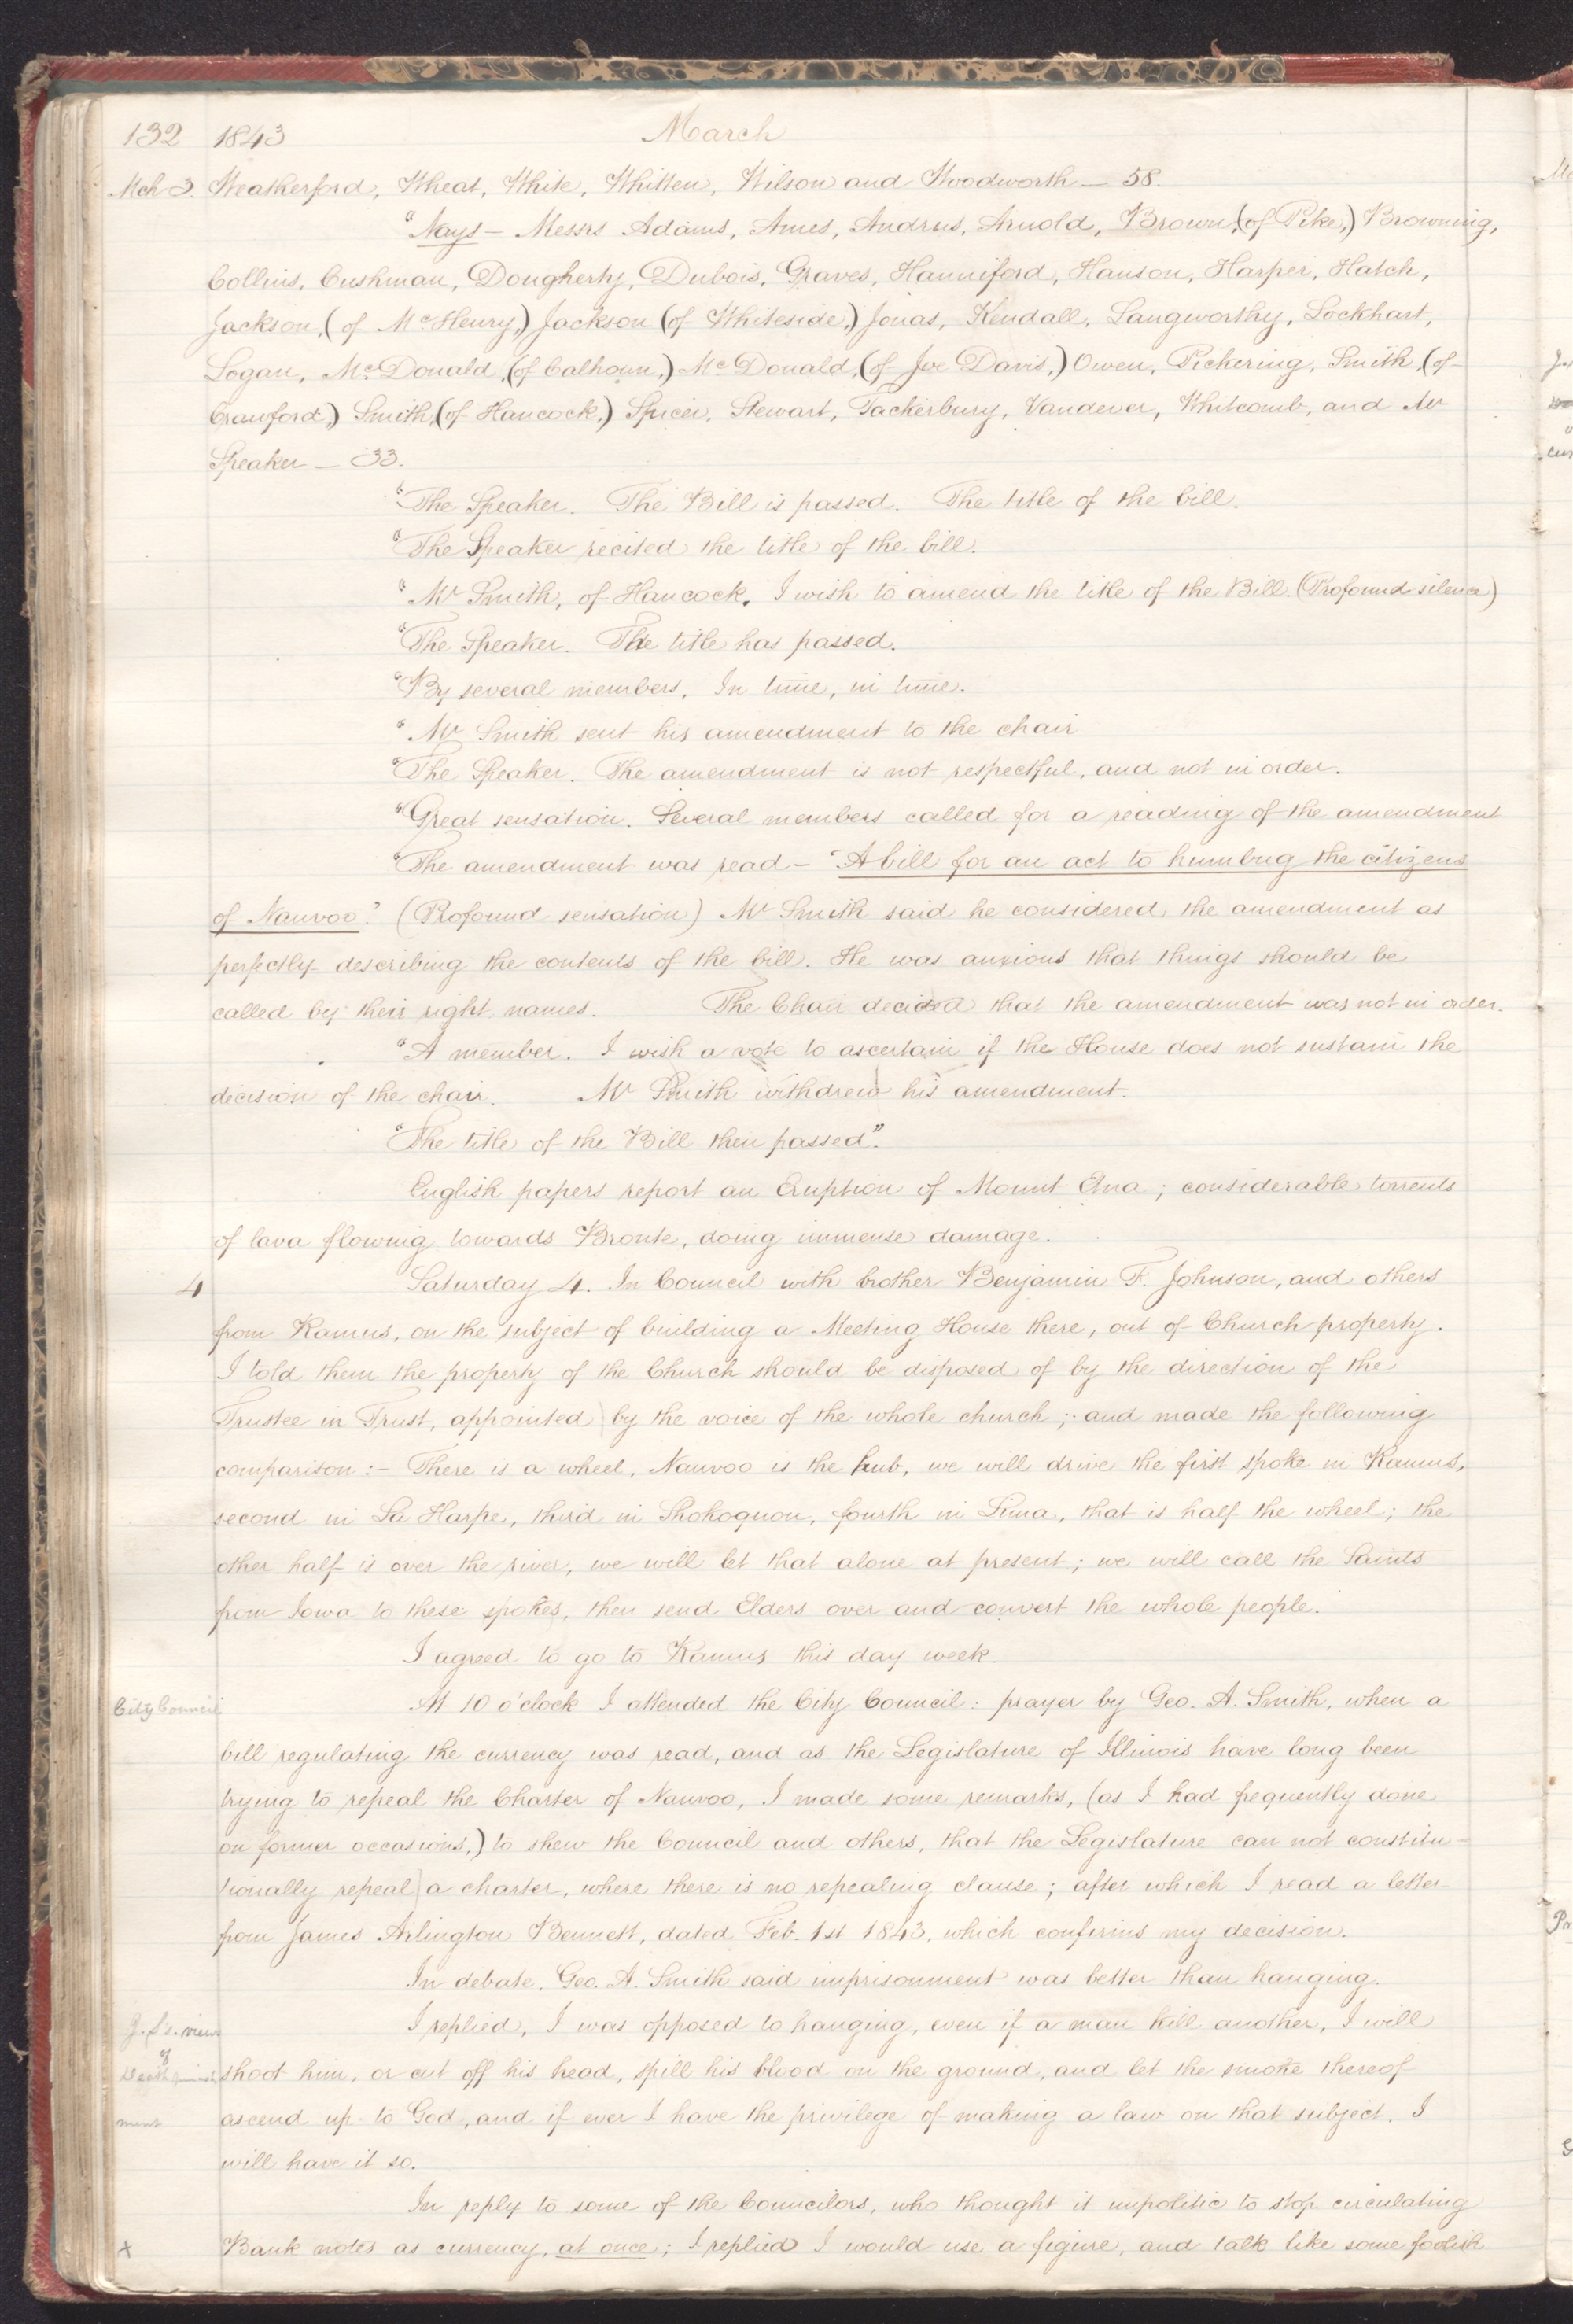 132 1843 March
Mch 3. Weatherford, Wheat, White, Whitten, Wilson and Woodworth — 58.
"Nays — Messrs Adams, Ames, Andrus, Arnold, Brown, (of Pike,) Browning,
Collins, Cushman, Dougherty, Dubois, Graves, Hanniford, Hanson, Harper, Hatch,
Jackson, (of McHenry,) Jackson (of Whiteside,) Jonas, Kendall, Langworthy, Lockhart,
Logan, McDonald, (of Calhoun,) McDonald, (of Joe Davis,) Owen, Pickering, Smith, (of
Crawford,) Smith, (of Hancock,) Spicer, Stewart, Tackerbury, Vandever, Whitcomb, and Mr
Speaker — 33.
"The Speaker. The Bill is passed. The title of the bill.
"The Speaker recited the title of the bill.
"Mr Smith, of Hancock. I wish to amend the title of the Bill. (Profound silence)
"The Speaker. The title has passed.
"By several members, In time, in time.
"Mr Smith sent his amendment to the chair
"The Speaker. The amendment is not respectful, and not in order.
"Great sensation. Several members called for a reading of the amendment
"The amendment was read — "A bill for an act to humbug the citizens
of Nauvoo." (Profound sensation) Mr Smith said he considered the amendment as
perfectly describing the contents of the bill. He was anxious that things should be
called by their right names. The Chair decided that the amendment was not in order.
"A member. I wish a vote to ascertain if the House does not sustain the
decision of the chair. Mr Smith withdrew his amendment.
"The title of the Bill then passed".
English papers report an Eruption of Mount Etna; considerable torrents
of lava flowing towards Bronte, doing immense damage.
4 Saturday 4. In Council with brother Benjamin F. Johnson, and others
from Ramus, on the subject of building a Meeting House there, out of Church property.
I told them the property of the Church should be disposed of by the direction of the
Trustee in Trust, appointed by the voice of the whole church; and made the following
comparison: — There is a wheel, Nauvoo is the hub, we will drive the first spoke in Ramus,
second in La Harpe, third in Shokoquon, fourth in Lima, that is half the wheel; the
other half is over the river, we will let that alone at present; we will call the Saints
from Iowa to these spokes, then send Elders over and convert the whole people.
I agreed to go to Ramus this day week.
City Council At 10 o'clock I attended the City Council: prayer by Geo. A. Smith, when a
bill regulating the currency was read, and as the Legislature of Illinois have long been
trying to repeal the Charter of Nauvoo, I made some remarks, (as I had frequently done
on former occasions,) to shew the Council and others, that the Legislature can not constitu-
tionally repeal a charter, where there is no repealing clause; after which I read a letter
from James Arlington Bennett, dated Feb. 1st 1843, which confirms my decision.
In debate, Geo. A. Smith said imprisonment was better than hanging.
J. S's. views I replied, I was opposed to hanging, even if a man kill another, I will
of
Death punish shoot him, or cut off his head, spill his blood on the ground, and let the smoke thereof
ment ascend up to God, and if ever I have the privilege of making a law on that subject, I
will have it so.
In reply to some of the Councilors, who thought it impolitic to stop circulating
x Bank notes as currency, at once; I replied I would use a figure, and talk like some foolish